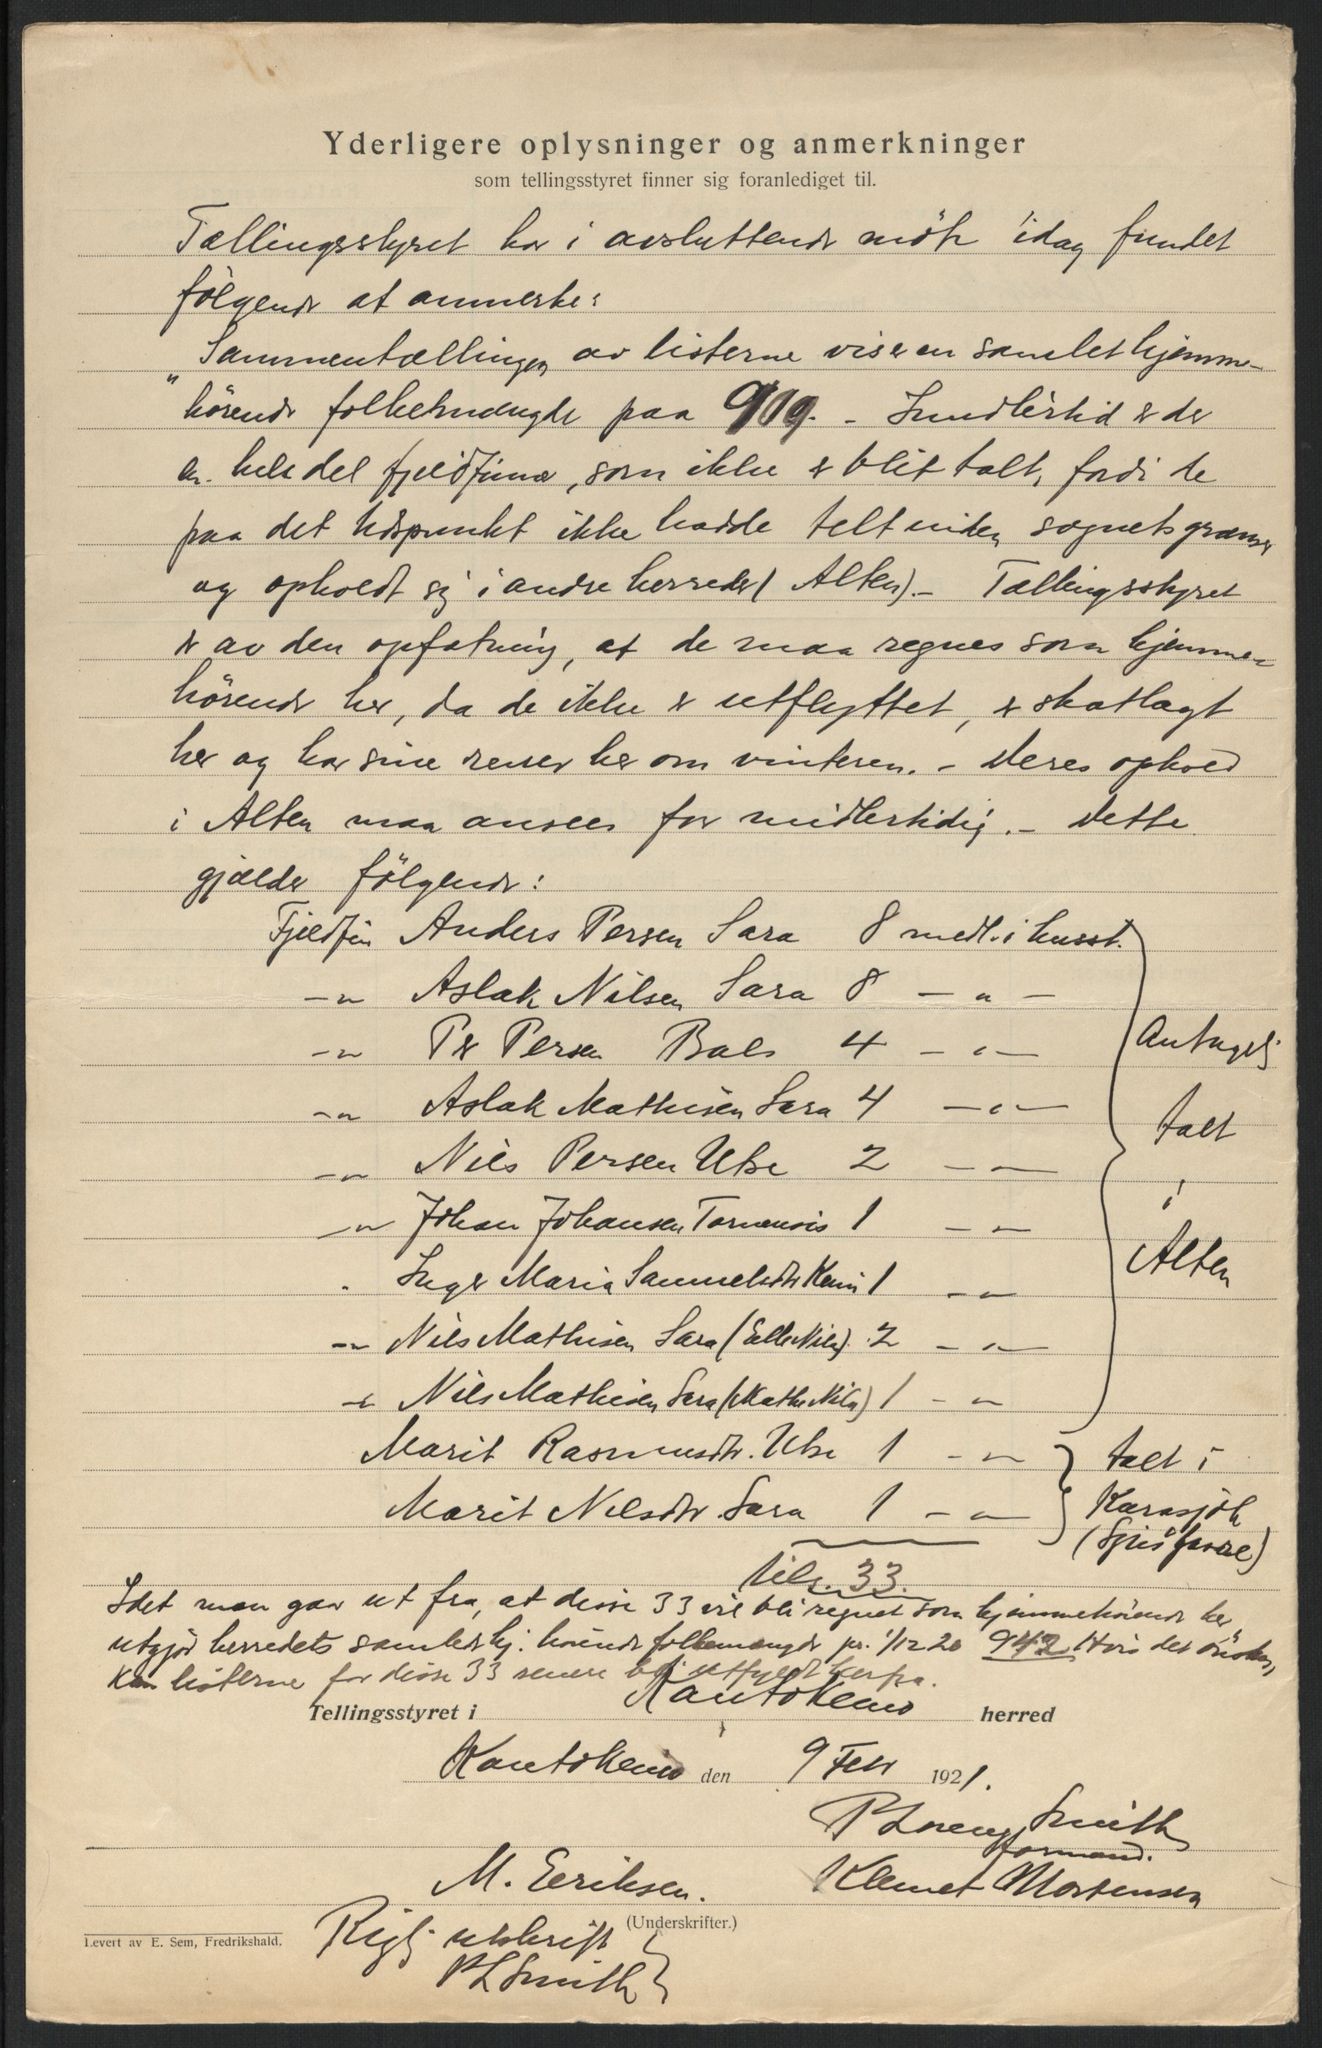 Yderligere oplysninger og anmerkninger
som tellingsstyret finner sig foranlediget til.
Tællingsstyret har i avsluttende möte idag fundet
følgende at anmerke:
"Sammentællingen av listerne viser en samlet hjemme-
hörende folkemængde paa 909. - Imidlertid er der
en hel del fjeldfinner, som ikke er blit talt, fordi de
paa det tidspunkt ikke hadde telt inden sognets grænser
og opholdt sig i andre herreder (Alten). - Tællingsstyret
er av den opfatning, at de maa regnes som hjemme-
hörende her, da de ikke er utflyttet, er skatlagt
her og har sine rener her om vinteren. - Deres ophold
i Alten maa ansees for midlertidig. - Dette
gjælder følgende:
Fjeldfin Anders Persen Sara 8 medl. i husst.
-"- Aslak Nilsen Sara 8 -"-
-"- Per Persen Bals 4 -"-
-"- Aslak Mathisen Sara 4 -"-
-"- Nils Persen Utse 2 -"-
-"- Johan Johansen Tornensis 1 -"-
" Inger Maria Samuelsdtr Kemi 1 -"-
-"- Nils Mathisen Sara (Elle Nils) 2 -"-
-"- Nils Mathisen Sara (Mathe Nils) 1 -"-
Antagelig
talt
i
Alten
Marit Rasmusdtr. Utse 1 -"-
Marit Nilsdtr. Sara 1 -"-
talt i
Karasjok
tils. 33.
Idet man gaar ut fra, at disse 33 vil bli regnet som hjemmehörende her
utgjör herredets samlede hj. hörende folkemængde pr. 1/12 20 942. Hvis det önskes,
kan listerne for disse 33 senere bli utfyldt herfra.
Tellingsstyret i Kautokeino herred
Kautokeino den 9 Febr 1921.
P Lorenz Smith
formand.
M. Eriksen. Klemet Mortensen
(Underskrifter.)
Rigtig utskrift
P L Smith
Levert av E. Sem, Fredrikshald.